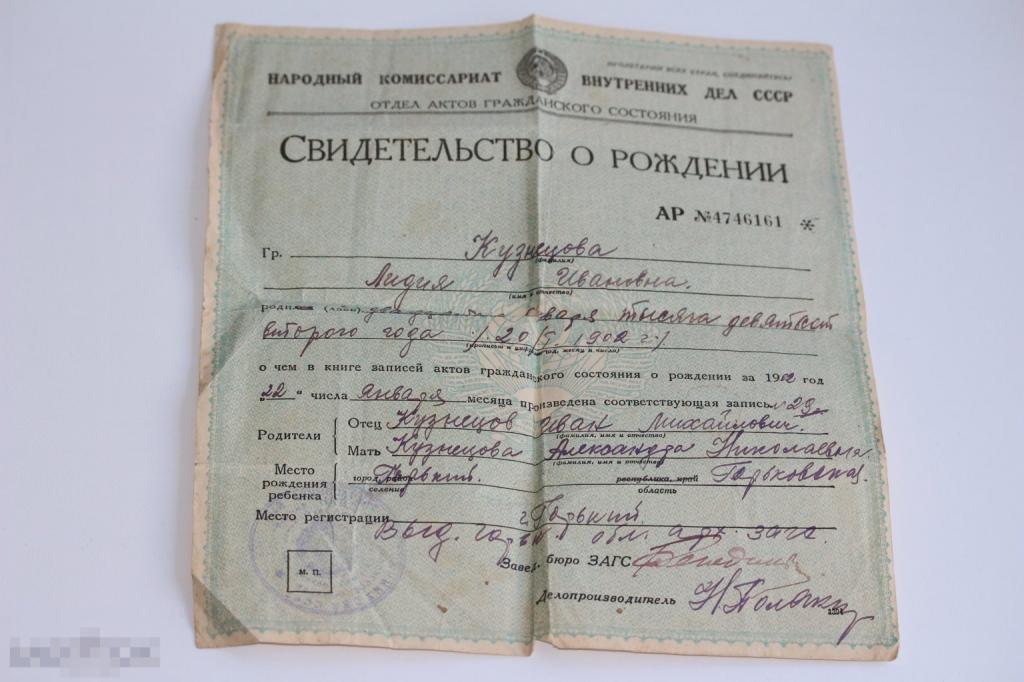 ПРОЛЕТАРИИ ВСЕХ СТРАН, СОЕДИНЯЙТЕСЬ!
НАРОДНЫЙ КОМИССАРИАТ ВНУТРЕННИХ ДЕЛ СССР
ОТДЕЛ АКТОВ ГРАЖДАНСКОГО СОСТОЯНИЯ
СВИДЕТЕЛЬСТВО О РОЖДЕНИИ
АР №4746161
Гр. Кузнецова
(фамилия)
Лидия Ивановна.
(имя и отчество)
января тысяча девятьсот
второго года /20/I 1902 г./
(прописью и цифрами год, месяц и число)
о чем в книге записей актов гражданского состояния о рождении за 1902 год
"22" числа января месяца произведена соответствующая запись № 29
Родители
Отец Кузнецов Иван Михайлович.
(фамилия, имя и отчество)
Мать Кузнецова Александра Николаевна
(фамилия, имя и отчество)
Место рождения ребенка
Горький. Горьковская
город, селение республика, край область
Место регистрации г. Горький.
Выд. горьк. обл. арх. загс.
Завед. бюро ЗАГС
м. п.
Делопроизводитель